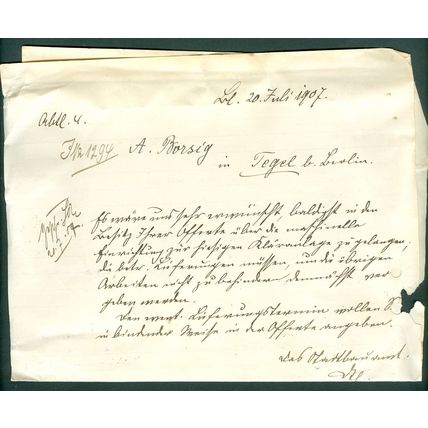 Bl. 20. Juli 1907.
Abtl. 4.
J№ 1294
A. Borsig
in Tegel b. Berlin.
Es wäre uns sehr erwünscht, baldigst in den
Besitz Ihrer Offerte über die maschinelle
Einrichtung zur hiesigen Kläranlage zu gelangen,
die betr. Lieferungen müssen, um die übrigen
Arbeiten nicht zu behindern, demnächst ver
geben werden.
Den wert. Lieferungstermin wollen S
in bindender Weise in der Offerte angeben.
Das Stadtbauamt.